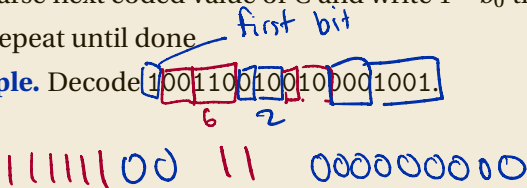 next coded value of C and write 1
epeat until done
first bit
ple. Decode 1001100100100001001.
6 2
111111 00 11 000000000